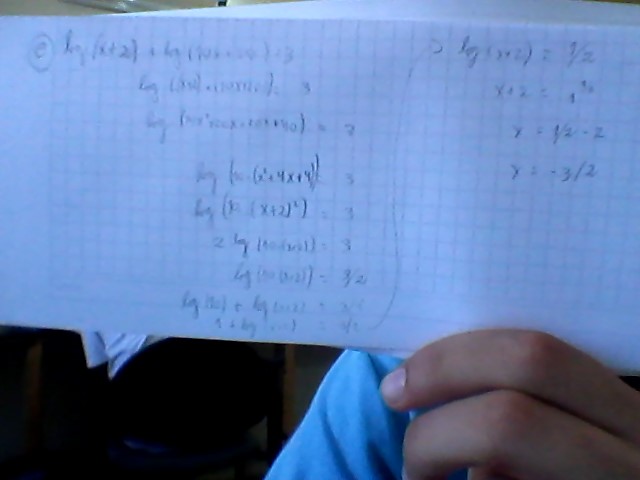 e) log (x+2) + log (10x+20) = 3
log (x+2) · (10x+20) = 3
= 3
log (10 · (x²+4x+4)) = 3
log (10 · (x+2)²) = 3
2 log (10 · (x+2)) = 3
log (10 (x+2)) = 3/2
log (10) + log (x+2) = 3/2
1 + log (x+2) = 3/2
log (x+2) = 1/2
x+2 =
x = 1/2 - 2
x = -3/2